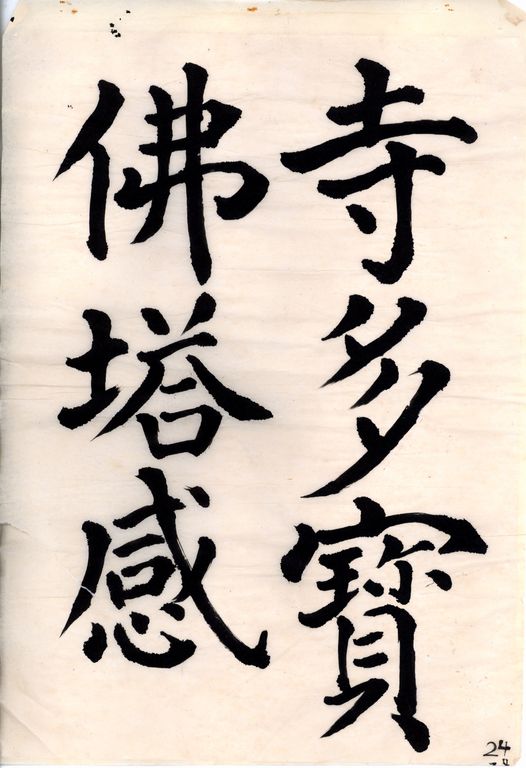 寺多寶
佛塔感
24